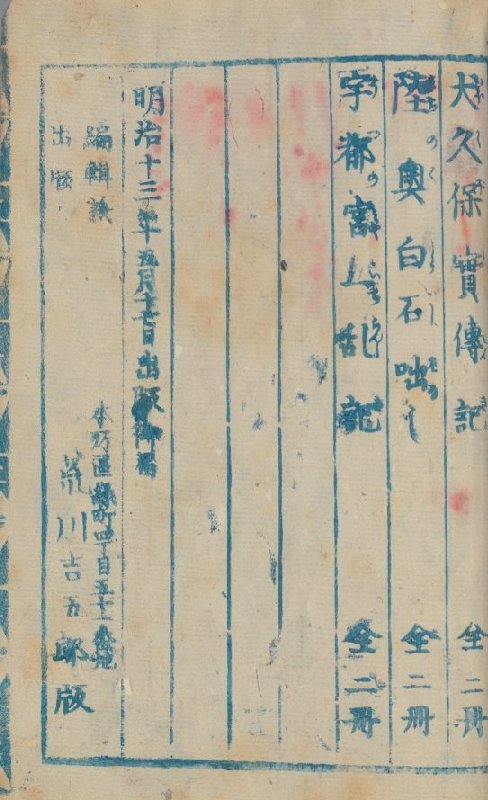 大久保實傳記 全二冊
陸奥白石咄し 全二冊
宇都宮 乱記 全二冊
明治十三年五月十七日出版御届
編輯 出版
本所區緑町四丁目五十 番地
荒川吉五郎版